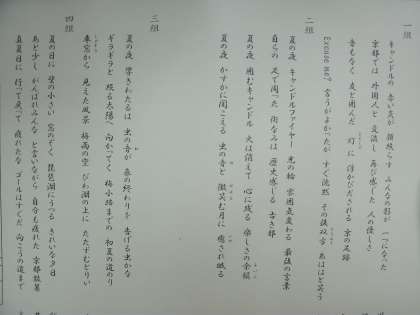 一組
キャンドルの 赤い炎が 領域らす みんなの影が 一つになった
京都では 外国人と 交流し 再び感じた 人の優しさ
音もなく 友と囲んだ 灯に 浮かびだされる 京の足跡
Excuse me? 言うがよかったが すぐ沈黙 その後双方 あははと笑う
二組
夏の夜 キャンドルファイヤー 光の輪 雰囲気変わる 最後の言葉
自らの 足で周った 街なみは 歴史感じる 古き都
夏の夜 囲むキャンドル 火は消えて 心に残る 楽しさの余韻
夏の夜 かすかに聞こえる 虫の音と 微笑む月に 癒され眠る
三組
夏の夜 響きわたるは 虫の音が 春の終わりを 告げる虫かな
ギラギラと 照る太陽へ 向かってく 梅小路までの 初夏の道のり
車窓から 見えた風景 梅雨の空 びわ湖の上に たたずむとりい
四組
夏の日に 堂の小さい 窓のぞく 琵琶湖にうつる きれいな夕日
あと少し がんばれみんな と言いながら 自分も疲れた 京都散策
真夏日に 行って戻って 疲れたな ゴールはすぐだ 向こうの道まで